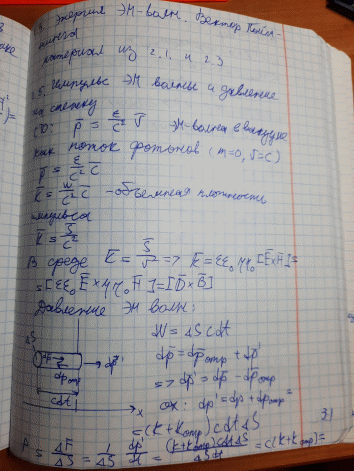 Энергия ЭМ-волн. Вектор Пойн-
тинга
материал из 2.1. и 2.3
Импульс ЭМ волны и давление
на стенку
СТО: p̄ = ε/c² v̄ ЭМ-волна в вакууме
как поток фотонов (m=0, v=c)
p̄ = ε/c² c̄
K̄ = w/c² c̄ - объемная плотность
импульса
K̄ = S̄/c²
В среде K̄ = S̄/v² => K̄ = εε₀μμ₀[Ē×H̄]=
=[εε₀Ē×μμ₀H̄]=[D̄×B̄]
Давление ЭМ волн:
ΔS
dV = ΔS cdt
dp̄ = dp̄отр + dp̄'
dp̄ dp̄'
dp̄отр
=> dp̄' = dp̄ - dp̄отр
cdt
x
ox: dp' = dp + dpотр =
=(K+Kотр) cdt ΔS
P = ΔF/ΔS = 1/ΔS dp'/dt = (K+Kотр)cdtΔS/ΔSdt = c(K+Kотр)=